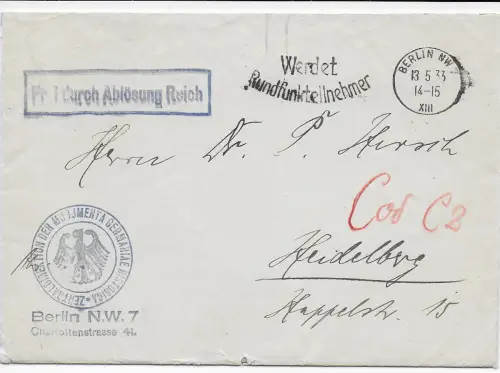 Frei durch Ablösung Reich
Werdet
Rundfunkteilnehmer
BERLIN NW
13.5.33
14-15
XIII
Herrn Dr. P. Hirsch
Cod C2
Heidelberg
Happelstr. 15
ZENTRALDIREKTION DER MONUMENTA GERMANIAE HISTORICA
Berlin N.W. 7
Charlottenstrasse 41.
a